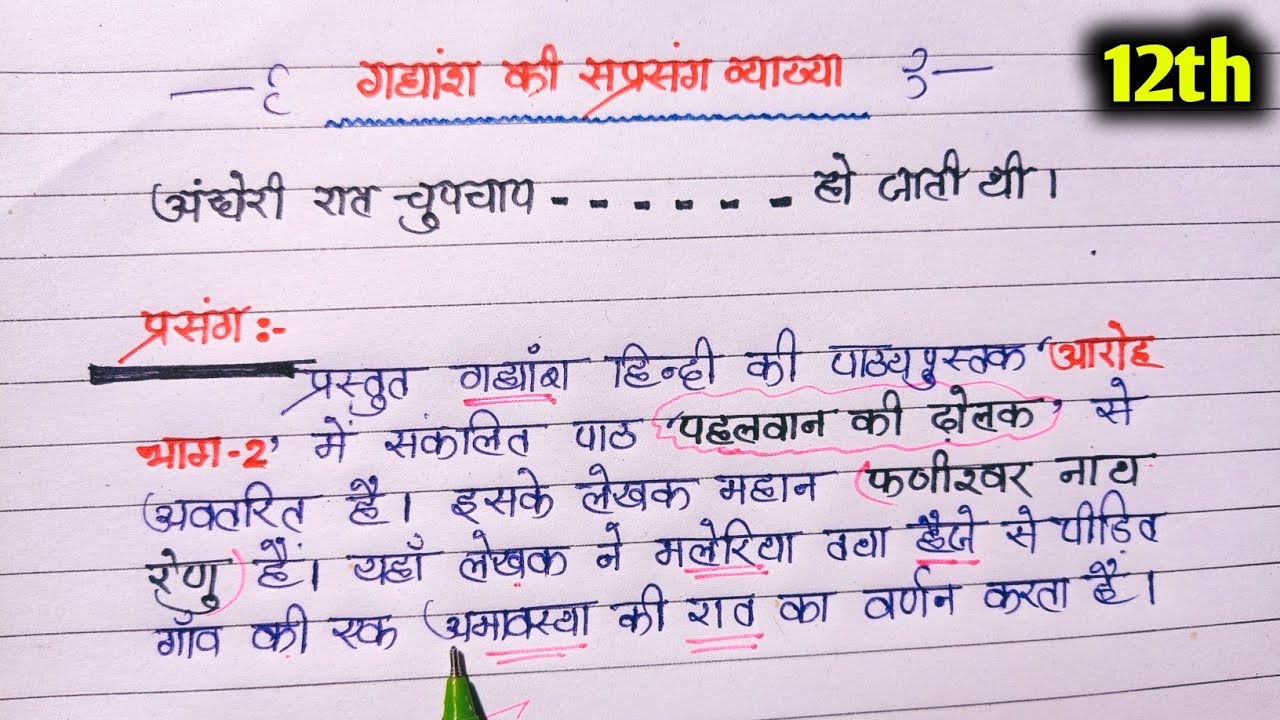 12th
गद्यांश की सप्रसंग व्याख्या
अंधेरी रात चुपचाप - - - - - - हो जाती थी।
प्रसंग :-
प्रस्तुत गद्यांश हिन्दी की पाठ्यपुस्तक 'आरोह
भाग-2' में संकलित पाठ 'पहलवान की ढ़ोलक' से
अवतरित है। इसके लेखक महान (फणीश्वर नाथ
रेणु) हैं। यहाँ लेखक ने मलेरिया तथा हैजे से पीड़ित
गाँव की एक अमावस्या की रात का वर्णन करता है।